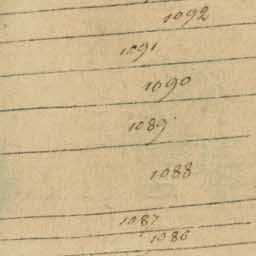 1092
1091
1090
1089
1088
1087
1086